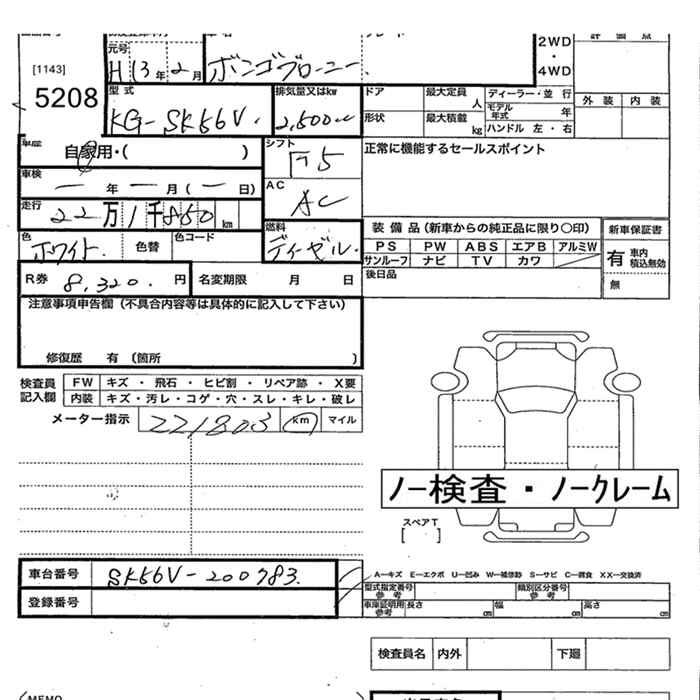 元号
H13年2月
ボンゴブローニー
2WD
・
4WD
[1143]
5208
型式
KG-SK56V
排気量又はkw
2,500cc
ドア
最大定員
人
ディーラー・並行
モデル年式
年
形状
最大積載
kg
ハンドル 左・右
外装 内装
自家用・( )
シフト
F5
正常に機能するセールスポイント
車検
ー年ー月(ー日)
AC
AC
走行
22万1千850km
色
ホワイト
色替
色コード
燃料
ディーゼル
装備品(新車からの純正品に限り〇印)
新車保証書
PS PW ABS エアB アルミW
サンルーフ ナビ TV カワ
有 車内積込無効
無
後日品
R券
8,320円
名変期限 月 日
注意事項申告欄(不具合内容等は具体的に記入して下さい)
修復歴 有(箇所 )
検査員記入欄
FW キズ・飛石・ヒビ割・リペア跡・X要
内装 キズ・汚レ・コゲ・穴・スレ・キレ・破レ
メーター指示
221803
km
マイル
ノー検査・ノークレーム
スペアT
[ ]
車台番号
SK56V-200783
登録番号
A―キズ E―エクボ U―凹み W―補修跡 S―サビ C―腐食 XX―交換済
型式指定番号参考
類別区分番号参考
車庫証明用参考
長さ cm
幅 cm
高さ cm
検査員名 内外 下廻
(MEMO